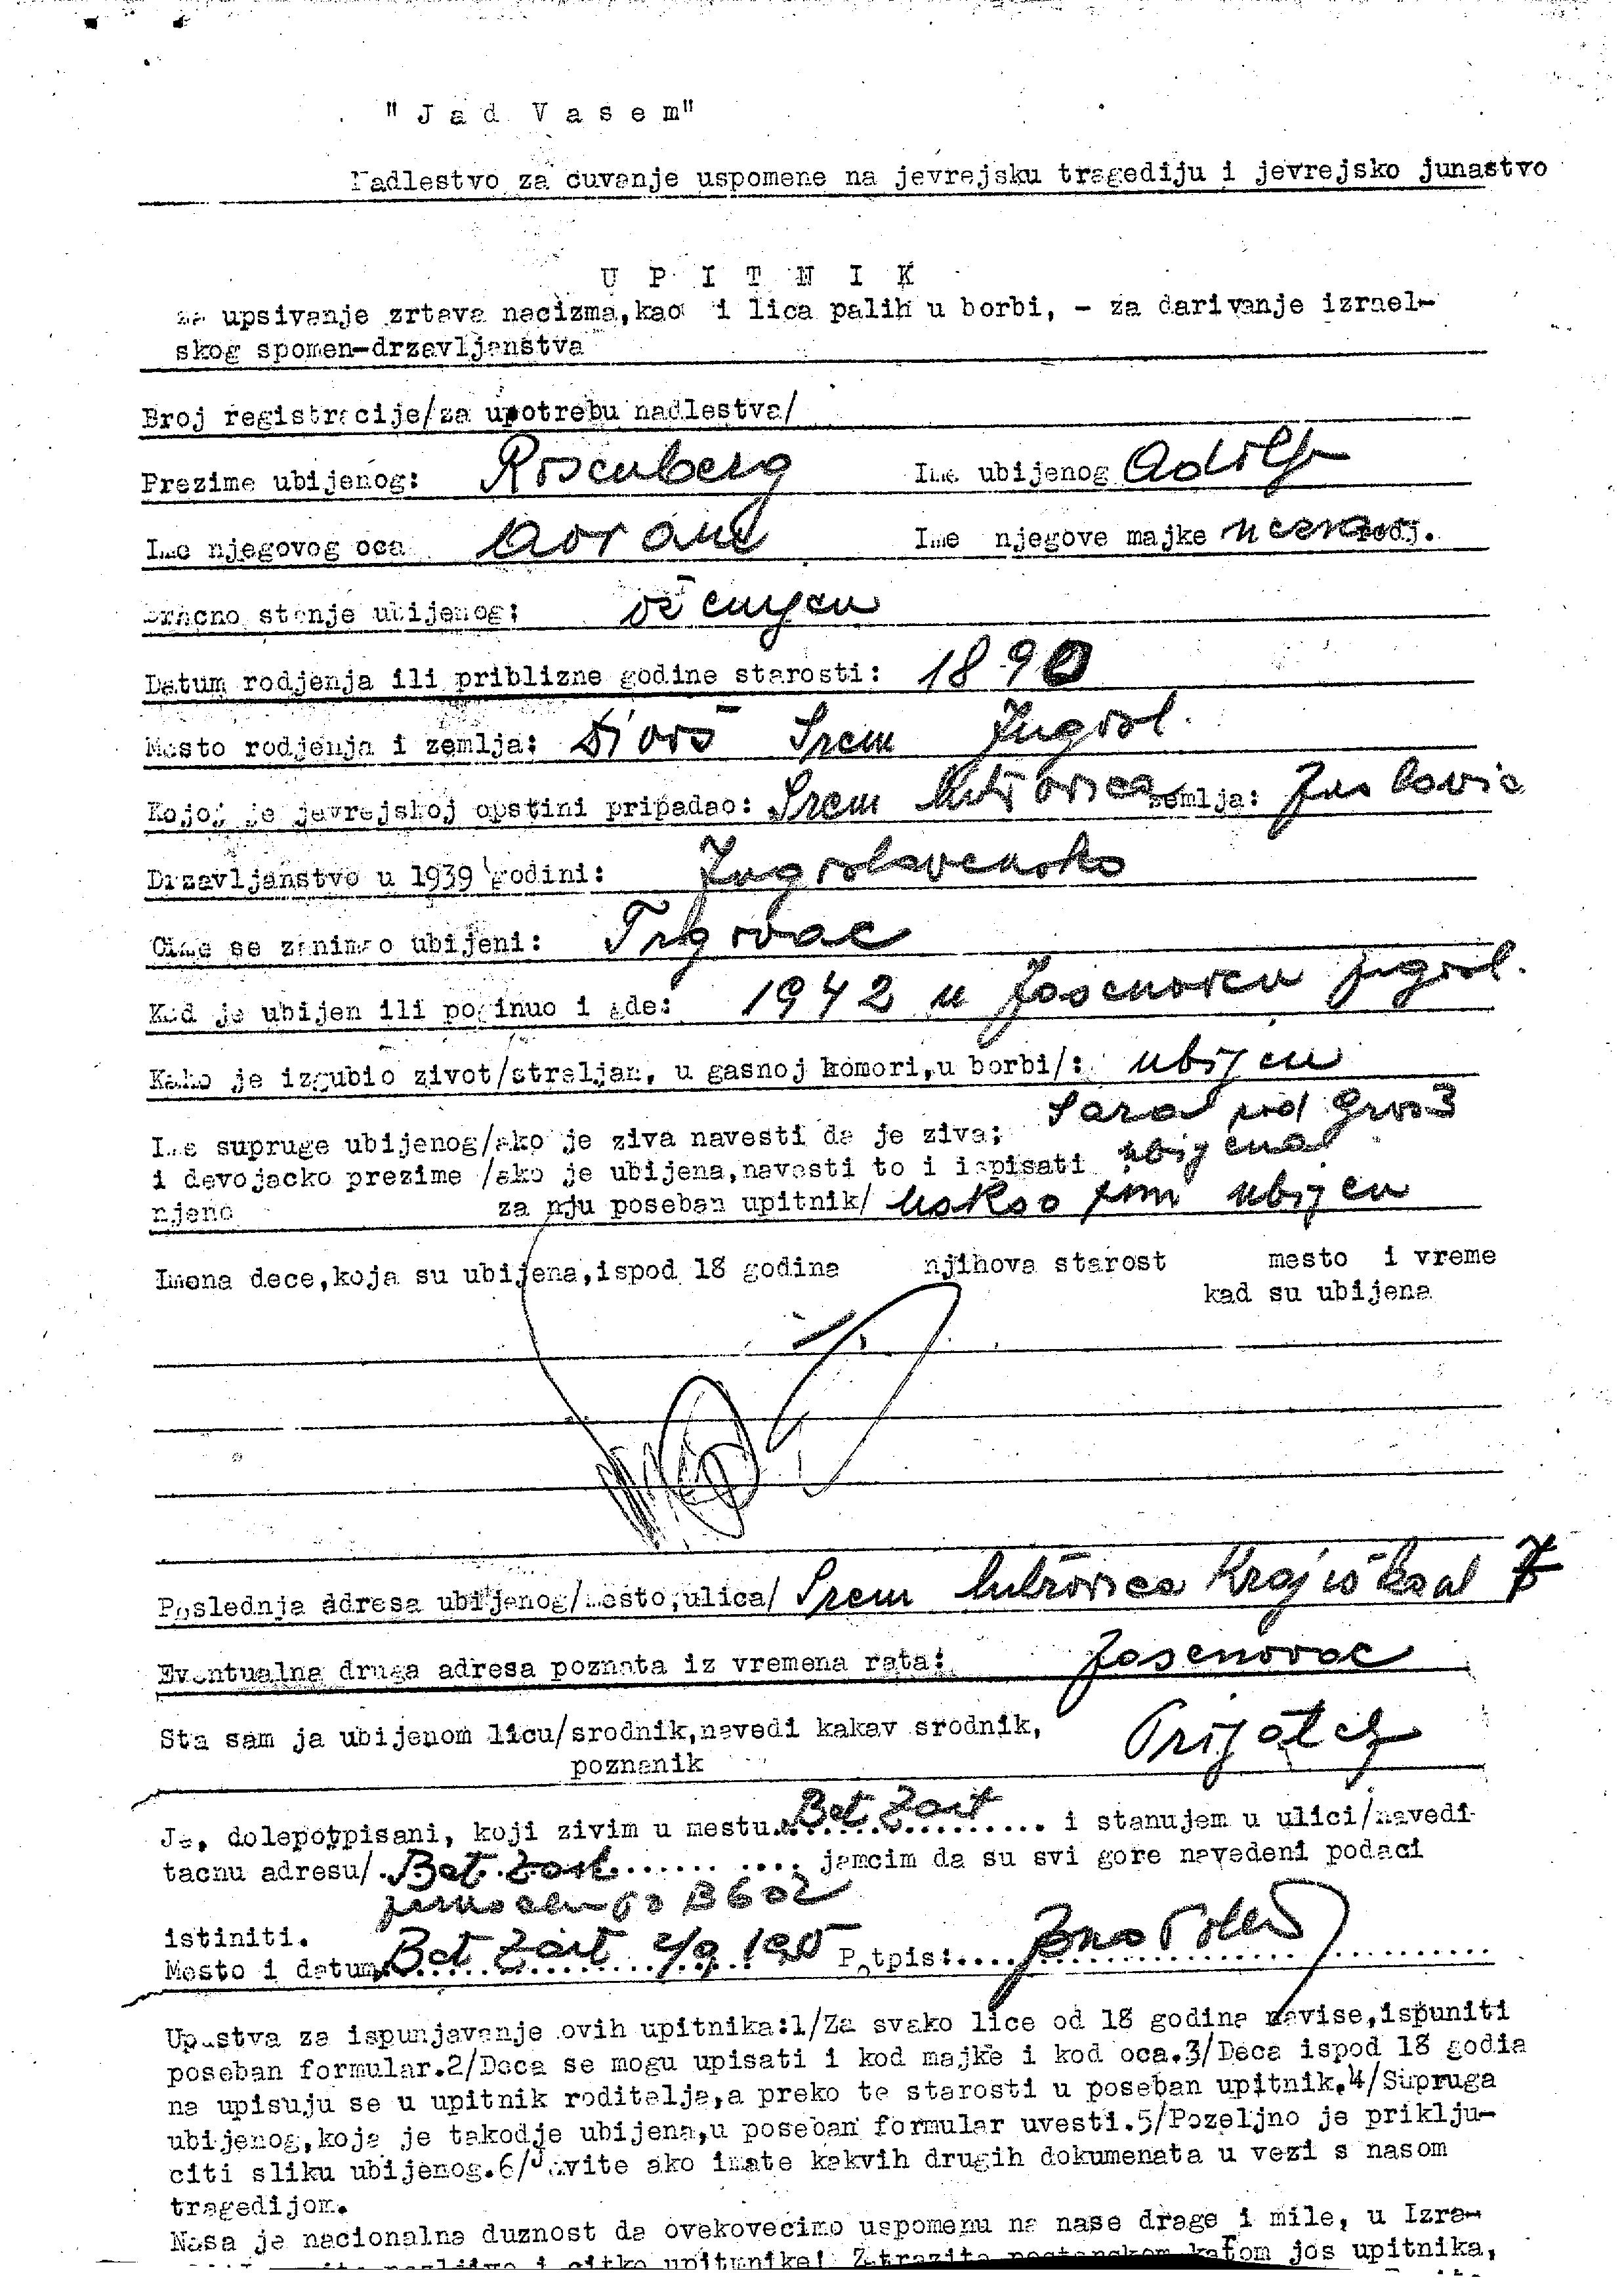 "Jad Vasem"
Nadlestvo za cuvanje uspomene na jevrejsku tragediju i jevrejsko junastvo
UPITNIK
za upsivanje zrtava nacizma, kao i lica palih u borbi, - za darivanje izrael-
skog spomen-drzavljanstva
Broj registracije/za upotrebu nadlestva/
Prezime ubijenog: Rosenberg Ime ubijenog Adolf
Ime njegovog oca Ime njegove majke rodj.
Bracno stanje ubijenog: oženjen
Datum rodjenja ili priblizne godine starosti: 1890
Mesto rodjenja i zemlja: Divoš Srem Jugosl.
Kojoj je jevrejskoj opstini pripadao: Srem Mitrovica zemlja:
Drzavljanstvo u 1939 godini: Jugoslavensko
Cime se zanimao ubijeni: Trgovac
Kad je ubijen ili poginuo i gde: 1942 u Jasenovcu jugosl.
Kako je izgubio zivot/streljan, u gasnoj komori,u borbi/: ubijen
Ime supruge ubijenog/ako je ziva navesti da je ziva; Sara rod Gross
i devojacko prezime /ako je ubijena,navesti to i ispisati ubijena
njeno za nju poseban upitnik/ ubijen
Imena dece,koja su ubijena,ispod 18 godina njihova starost mesto i vreme
kad su ubijena
Poslednja adresa ubijenog/mesto,ulica/ Srem Mitrovica Krajiška ul 7
Eventualna druga adresa poznata iz vremena rata: Jasenovac
Sta sam ja ubijenom licu/srodnik,navedi kakav srodnik, Prijatelj
poznanik
Ja, dolepotpisani, koji zivim u mestu Bet Zait i stanujem u ulici/navedi
tacnu adresu/ Bet Zait jamcim da su svi gore navedeni podaci
istiniti.
Mesto i datum Bet Zait 2/9 Potpis:
Upustva za ispunjavanje ovih upitnika:1/Za svako lice od 18 godina navise,ispuniti
poseban formular.2/Deca se mogu upisati i kod majke i kod oca.3/Deca ispod 18 godia
na upisuju se u upitnik roditelja,a preko te starosti u poseban upitnik.4/Supruga
ubijenog,koja je takodje ubijena,u poseban formular uvesti.5/Pozeljno je priklju-
citi sliku ubijenog.6/Javite ako imate kakvih drugih dokumenata u vezi s nasom
tragedijom.
Nasa je nacionalna duznost da ovekovecimo uspomenu na nase drage i mile, u Izra-
pazljivo i citko upitnike! Zatrazite postanskom kartom jos upitnika,